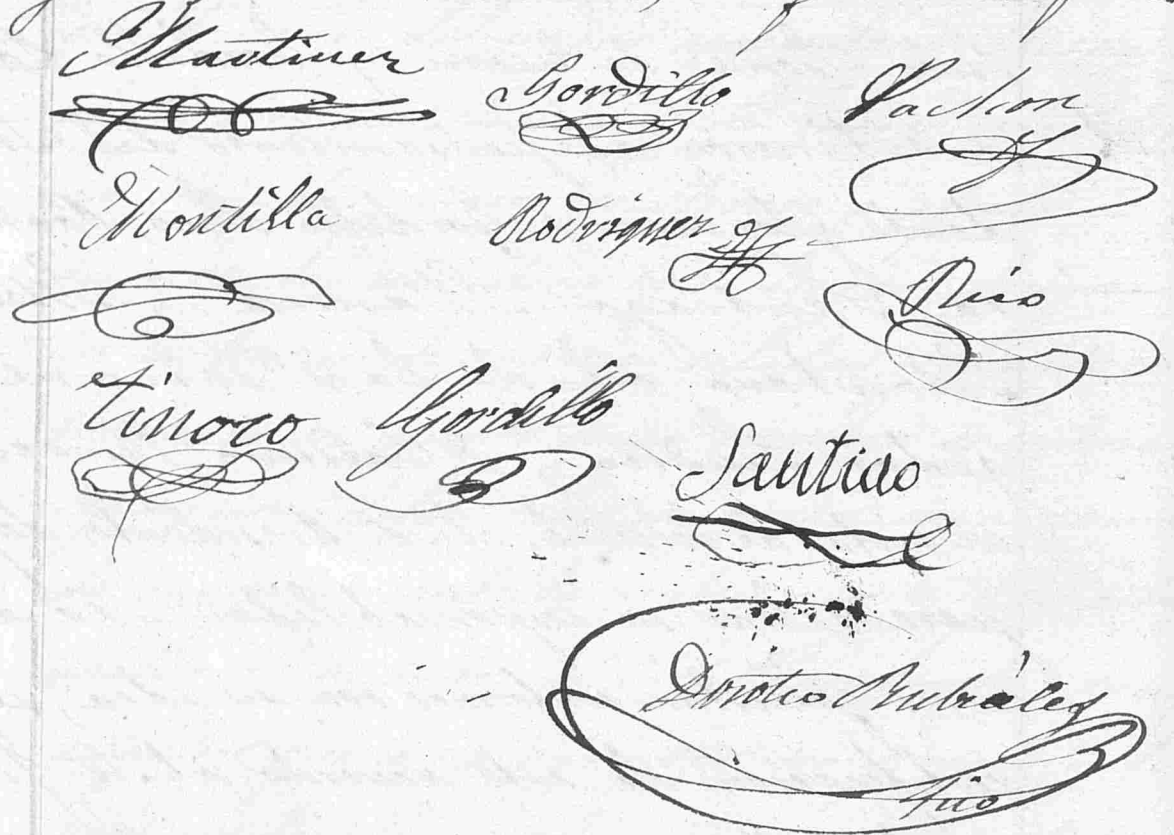 Martinez Gordillo Pachon
Montilla Rodriguez Rico
Tinoco Gordillo
Santiao
Doroteo Rubiáles
Srio